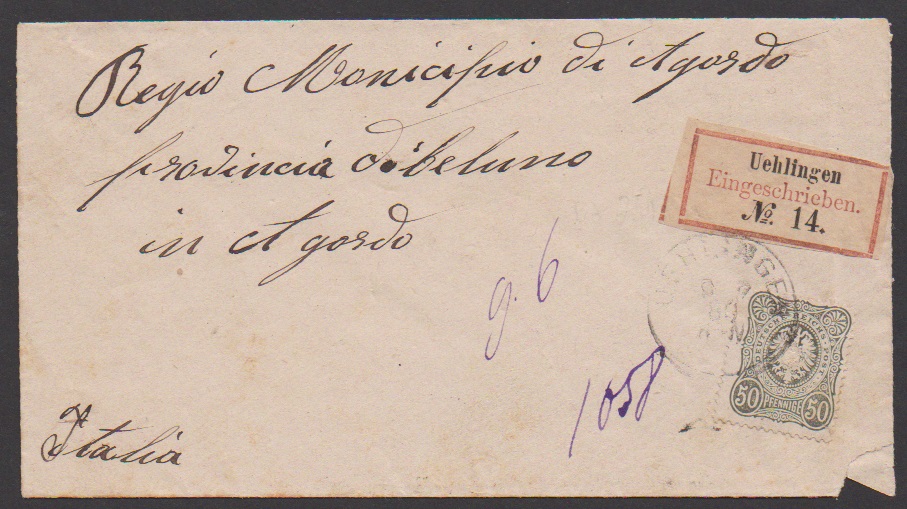 Regio Monicipio di Agordo
provincia di beluno
in Agordo
Uehlingen
Eingeschrieben.
No. 14.
g. 6
UEHLINGEN
1058
50 PFENNIGE 50
Italia